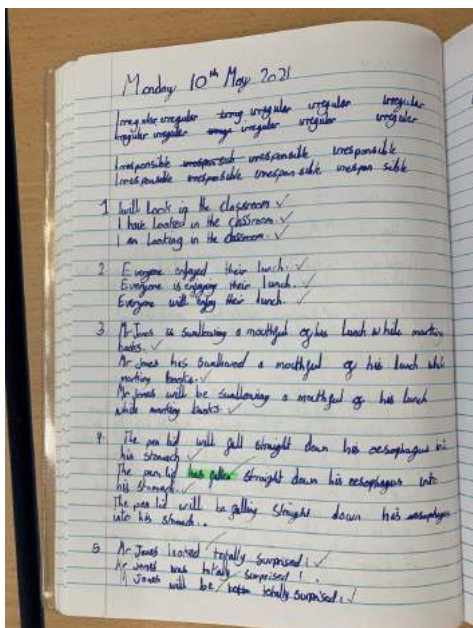 Monday 10th May 2021
Irregular irregular irregular irregular irregular
Irregular irregular irregular irregular irregular
Irresponsible irresponsible irresponsible
Irresponsible irresponsible irresponsible irresponsible
1 I will Look in the classroom. ✓
I have Looked in the classroom. ✓
I am Looking in the classroom. ✓
2. Everyone enjoyed their lunch. ✓
Everyone is enjoying their lunch. ✓
Everyone will enjoy their lunch. ✓
3. Mr Jones is swallowing a mouthful of his Lunch while marking
books. ✓
Mr Jones has swallowed a mouthful of his lunch while
marking books. ✓
Mr Jones will be swallowing a mouthful of his lunch
while marking books. ✓
4. The pen lid will fall straight down his oesophagus in
his stomach ✓
The pen lid has fallen straight down his oesophagus into
his stomach. ✓
The pen lid will be falling straight down his oesophagus
into his stomach..
5 Mr Jones looked totally surprised! ✓
Mr Jones was totally surprised!
Mr Jones will be totally surprised! ✓